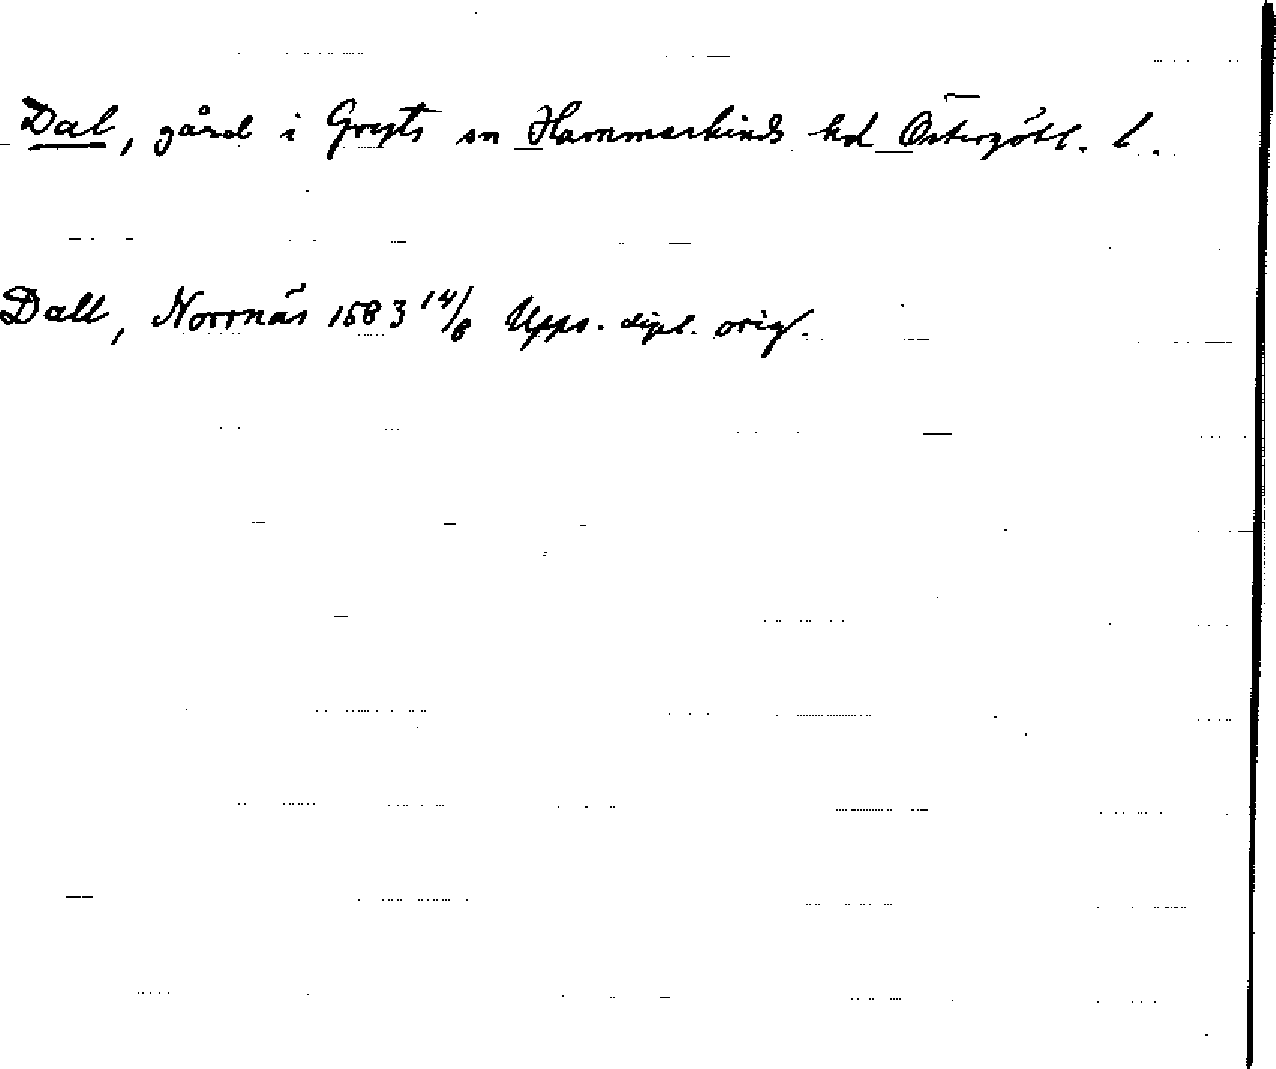 Dal, gård i Gryts sn Hammarkinds hd Östergötl. l.
Dall, Norrnäs 1583 14/6 Upps. dipl. orig.